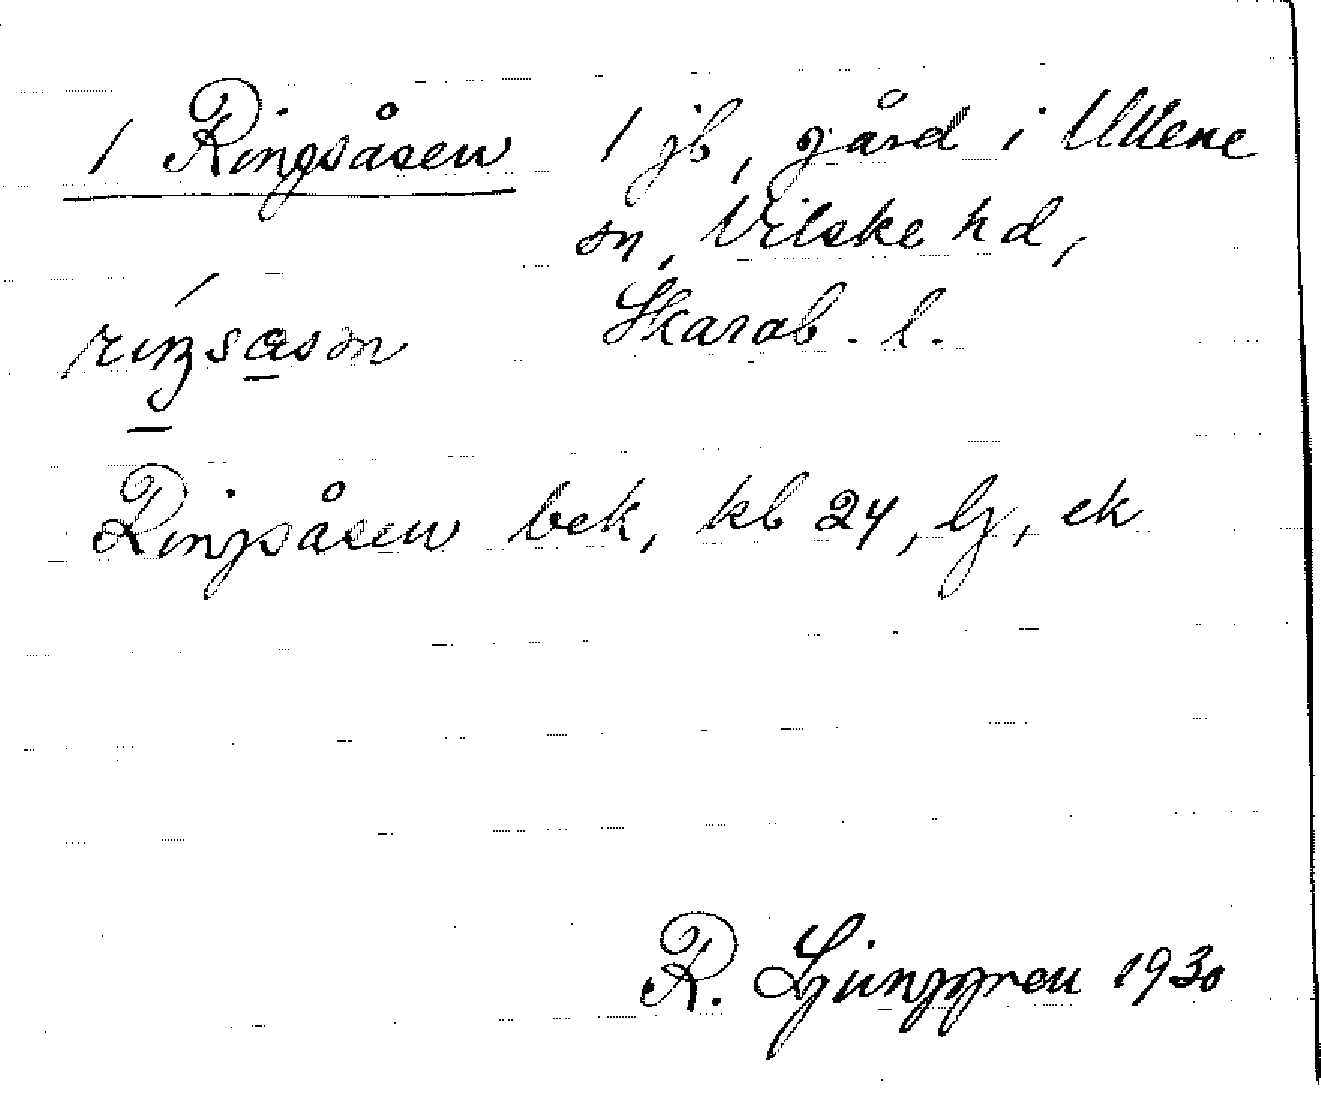 1 Ringsåsen 1 jb, gård i Ullene
sn, Vilske hd,
Skarab. l.
Ringsåsen bek, kb 24, lj, ek
R. Ljunggren 1930